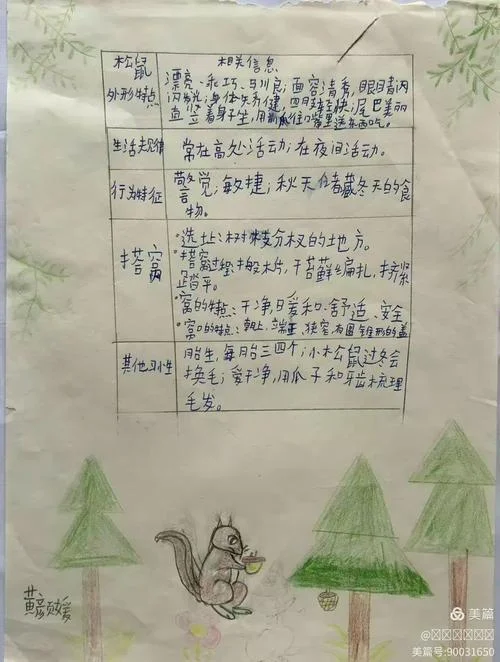 松鼠
外形特点
相关信息
漂亮、乖巧、驯良;面容清秀,眼睛闪
闪发光;身体矫健,四肢轻快;尾巴美丽
直立着身子坐,用前爪往嘴里送东西吃。
生活规律
常在高处活动;在夜间活动。
行为特征
警觉;敏捷;秋天储藏冬天的食
物。
搭窝
·选址:树枝分杈的地方。
·搭窝过程:搬木片,干苔藓编扎,挤紧
踏平。
·窝的特点:干净、暖和、舒适、安全
·窝口的特点:朝上、端正、狭窄、有圆锥形的盖
其他习性
胎生,每胎三四个;小松鼠过冬会
换毛;爱干净,用爪子和牙齿梳理
毛发。
美篇
美篇号:90031650